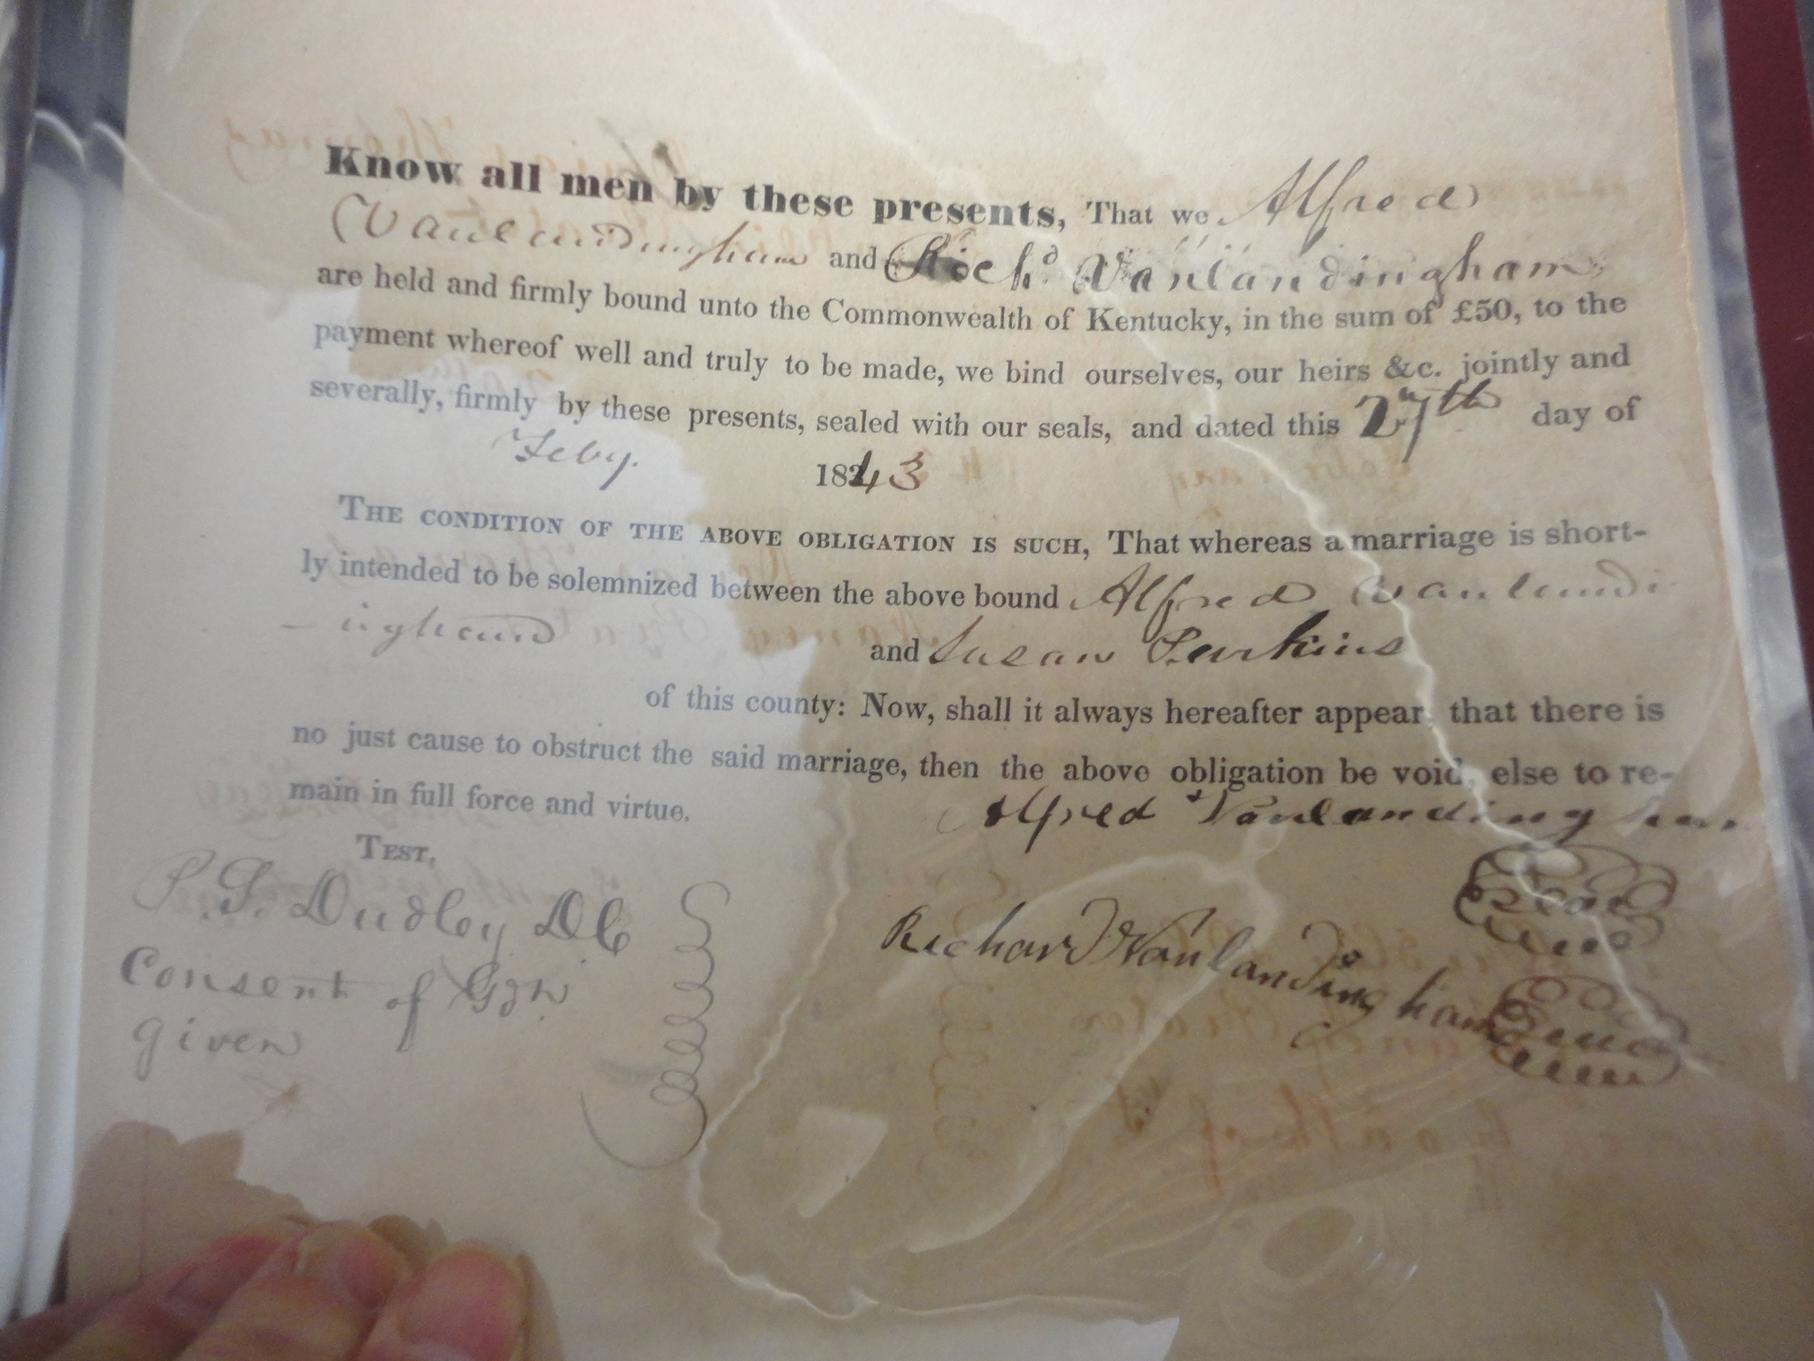 Know all men by these presents, That we Alfred
Vanlandingham and Richd. Vanlandingham
are held and firmly bound unto the Commonwealth of Kentucky, in the sum of £50, to the
payment whereof well and truly to be made, we bind ourselves, our heirs &c. jointly and
severally, firmly by these presents, sealed with our seals, and dated this 27th day of
Feby. 1843
THE CONDITION OF THE ABOVE OBLIGATION IS SUCH, That whereas a marriage is short-
ly intended to be solemnized between the above bound Alfred Vanlandi
- ingham and Susan Perkins
of this county: Now, shall it always hereafter appear that there is
no just cause to obstruct the said marriage, then the above obligation be void, else to re-
main in full force and virtue.
Alfred Vanlandingham
TEST,
Seal
P. S. Dudley DC
Richard Vanlandingham Seal
Consent of Gdn
given